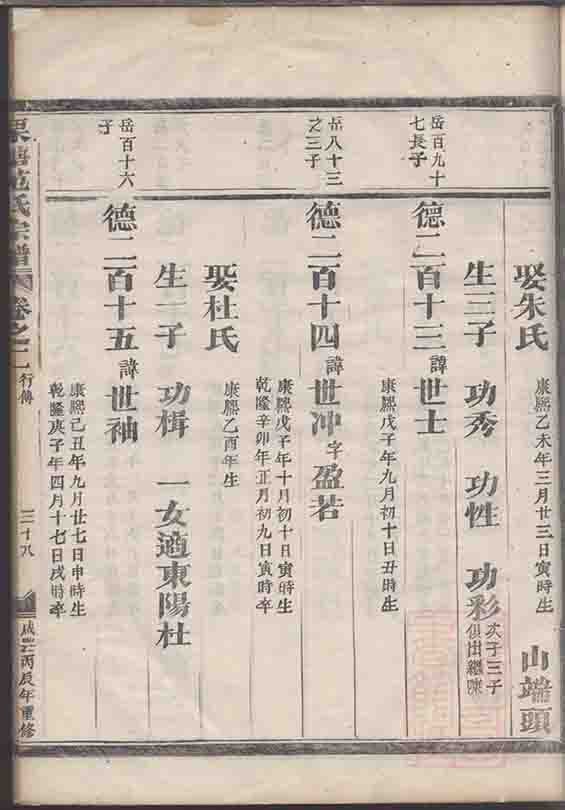 娶朱氏 康熙乙未年三月廿三日寅時生 山端頭
生三子 功秀 功性 功彩 次子三子俱出繼
岳百九十七長子
德二百十三 諱世士
康熙戊子年九月初十日丑時生
岳八十三之三子
德二百十四 諱世冲 字盈若
康熙戊子年十月初十日寅時生
乾隆辛卯年正月初九日寅時卒
娶杜氏 康熙乙酉年生
生一子 功楫 一女適東陽杜
岳百十六子
德二百十五 諱世袖
康熙己丑年九月廿七日申時生
乾隆庚子年四月十七日戌時卒
范氏宗譜 卷之二 行傳 三十八 咸豐丙辰年重修